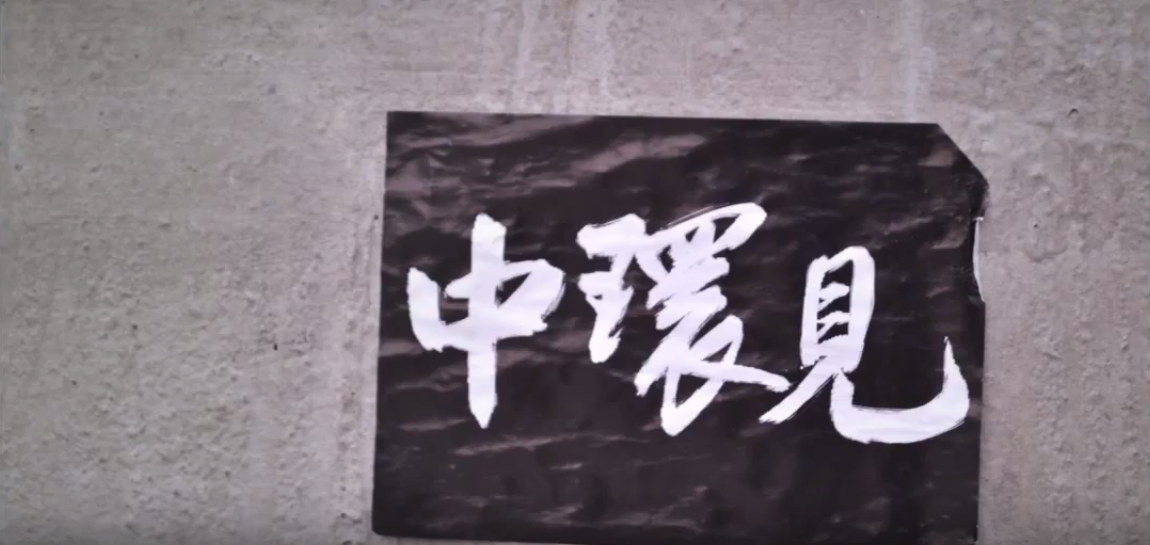 中環見